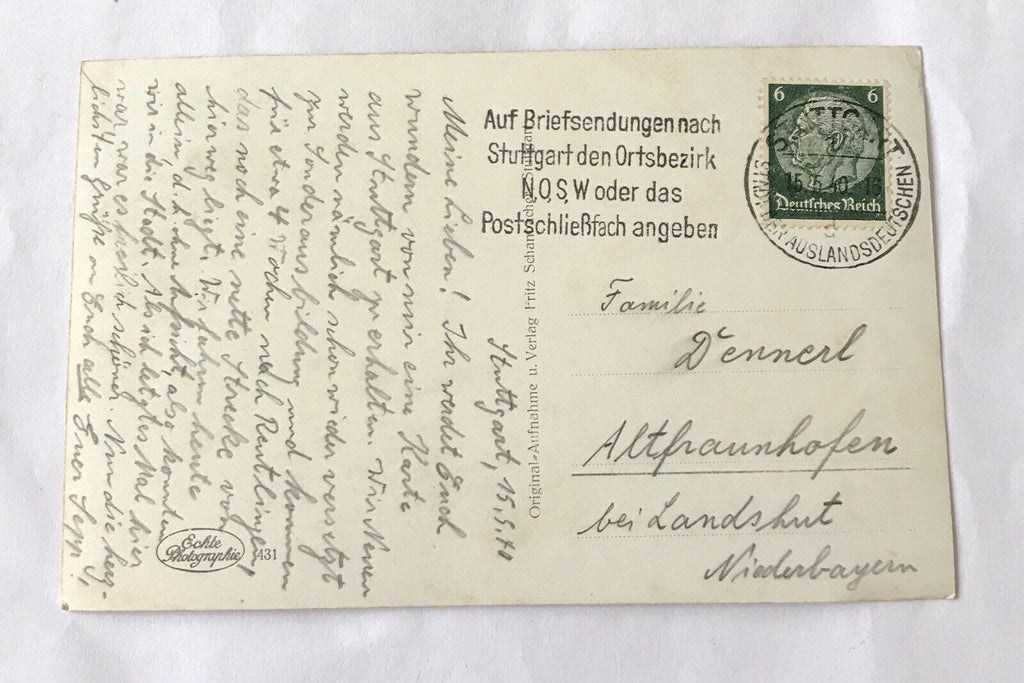 Stuttgart, 15.5.40
Meine Lieben! Ihr werdet Euch
wundern von mir eine Karte
aus Stuttgart zu erhalten. Wir
werden nämlich schon wieder versetzt
zur Sonderausbildung und kommen
für etwa 4 Wochen nach Reutlingen,
das noch eine nette Strecke von
hier weg liegt. Wir fahren heute
allein d. h. ohne Aufsicht, also konnten
wir in die Stadt. Als ich letztes Mal hier
war, war es freilich schöner. Nun die herz-
lichsten Grüße an Euch alle Euer Sepp
Eckle
Photographie
431
Original-Aufnahme u. Verlag Fritz Schumacher, Stuttgart
Auf Briefsendungen nach
Stuttgart den Ortsbezirk
N,O,S,W oder das
Postschließfach angeben
6 6
Deutsches Reich
STUTTGART
15.5.40.-16
STADT DER AUSLANDSDEUTSCHEN
Familie
Dennerl
Altfraunhofen
bei Landshut
Niederbayern